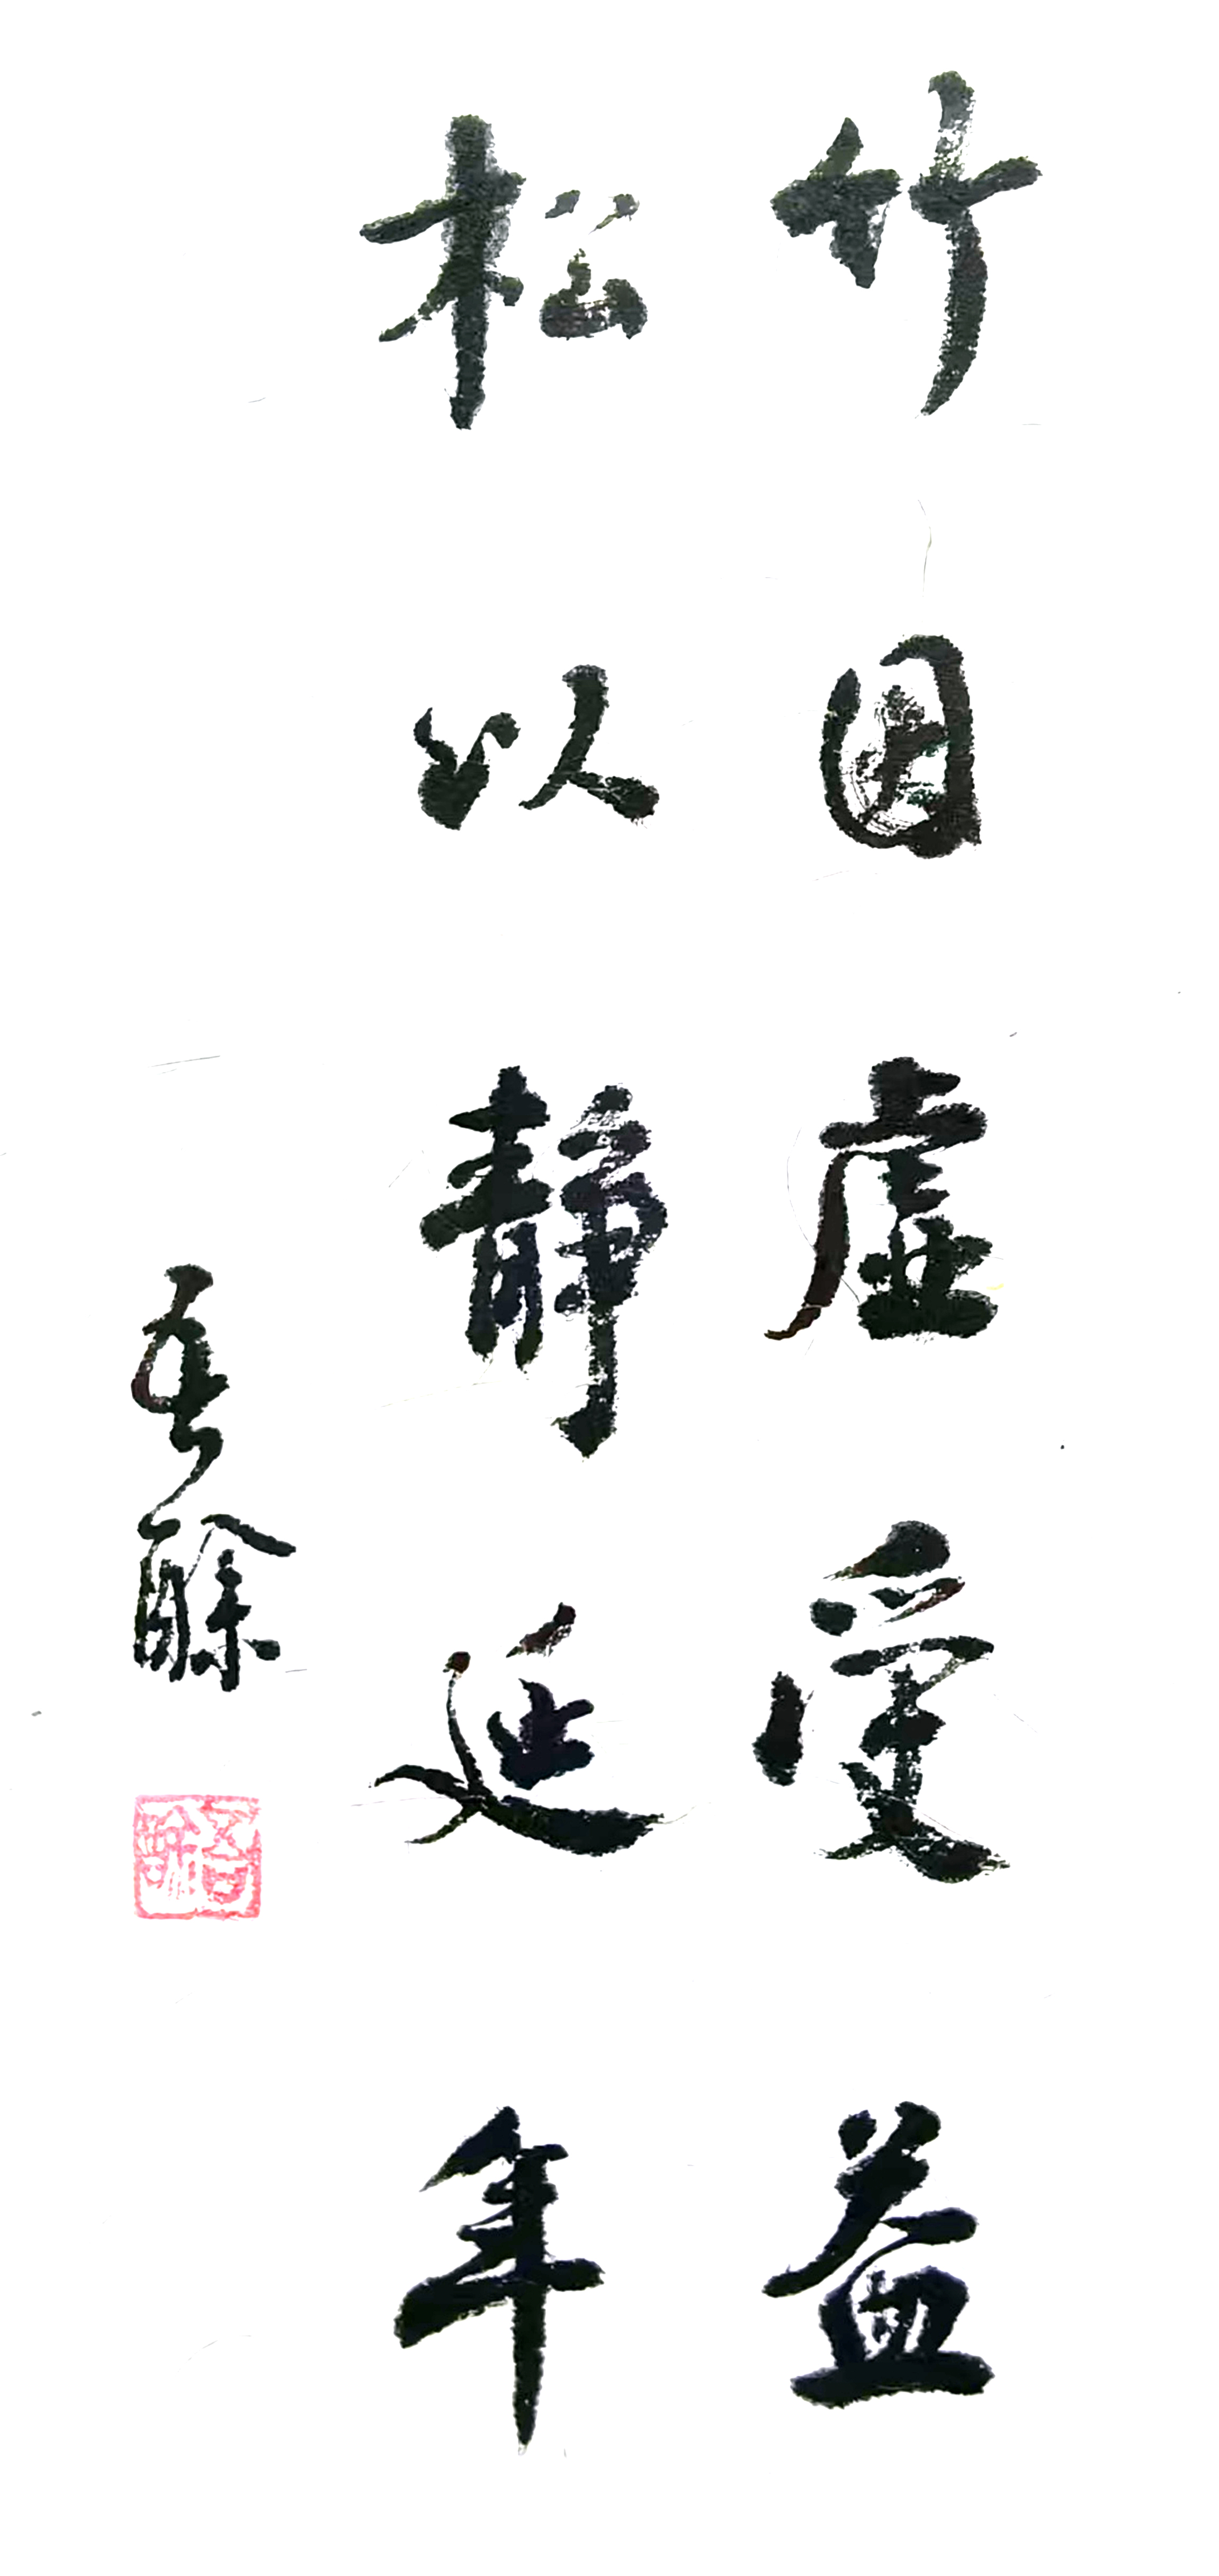 竹因虚受益
松以静延年